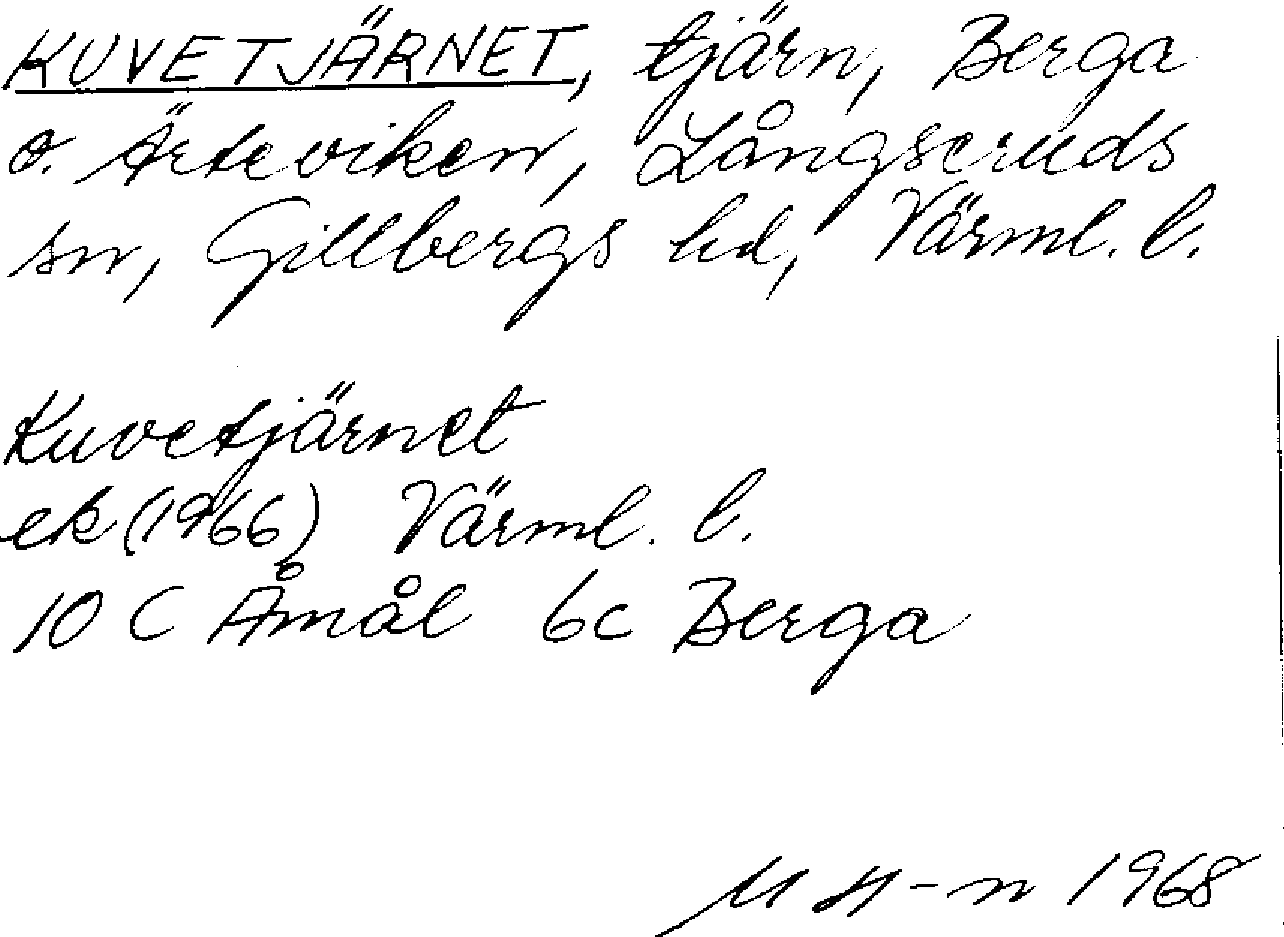 KUVETJÄRNET, tjärn, Berga
o. Ärteviken, Långseruds
sn, Gillbergs hd, Värml. l.
Kuvetjärnet
ek (1966) Värml. l.
10 C Åmål 6c Berga
M H-n 1968